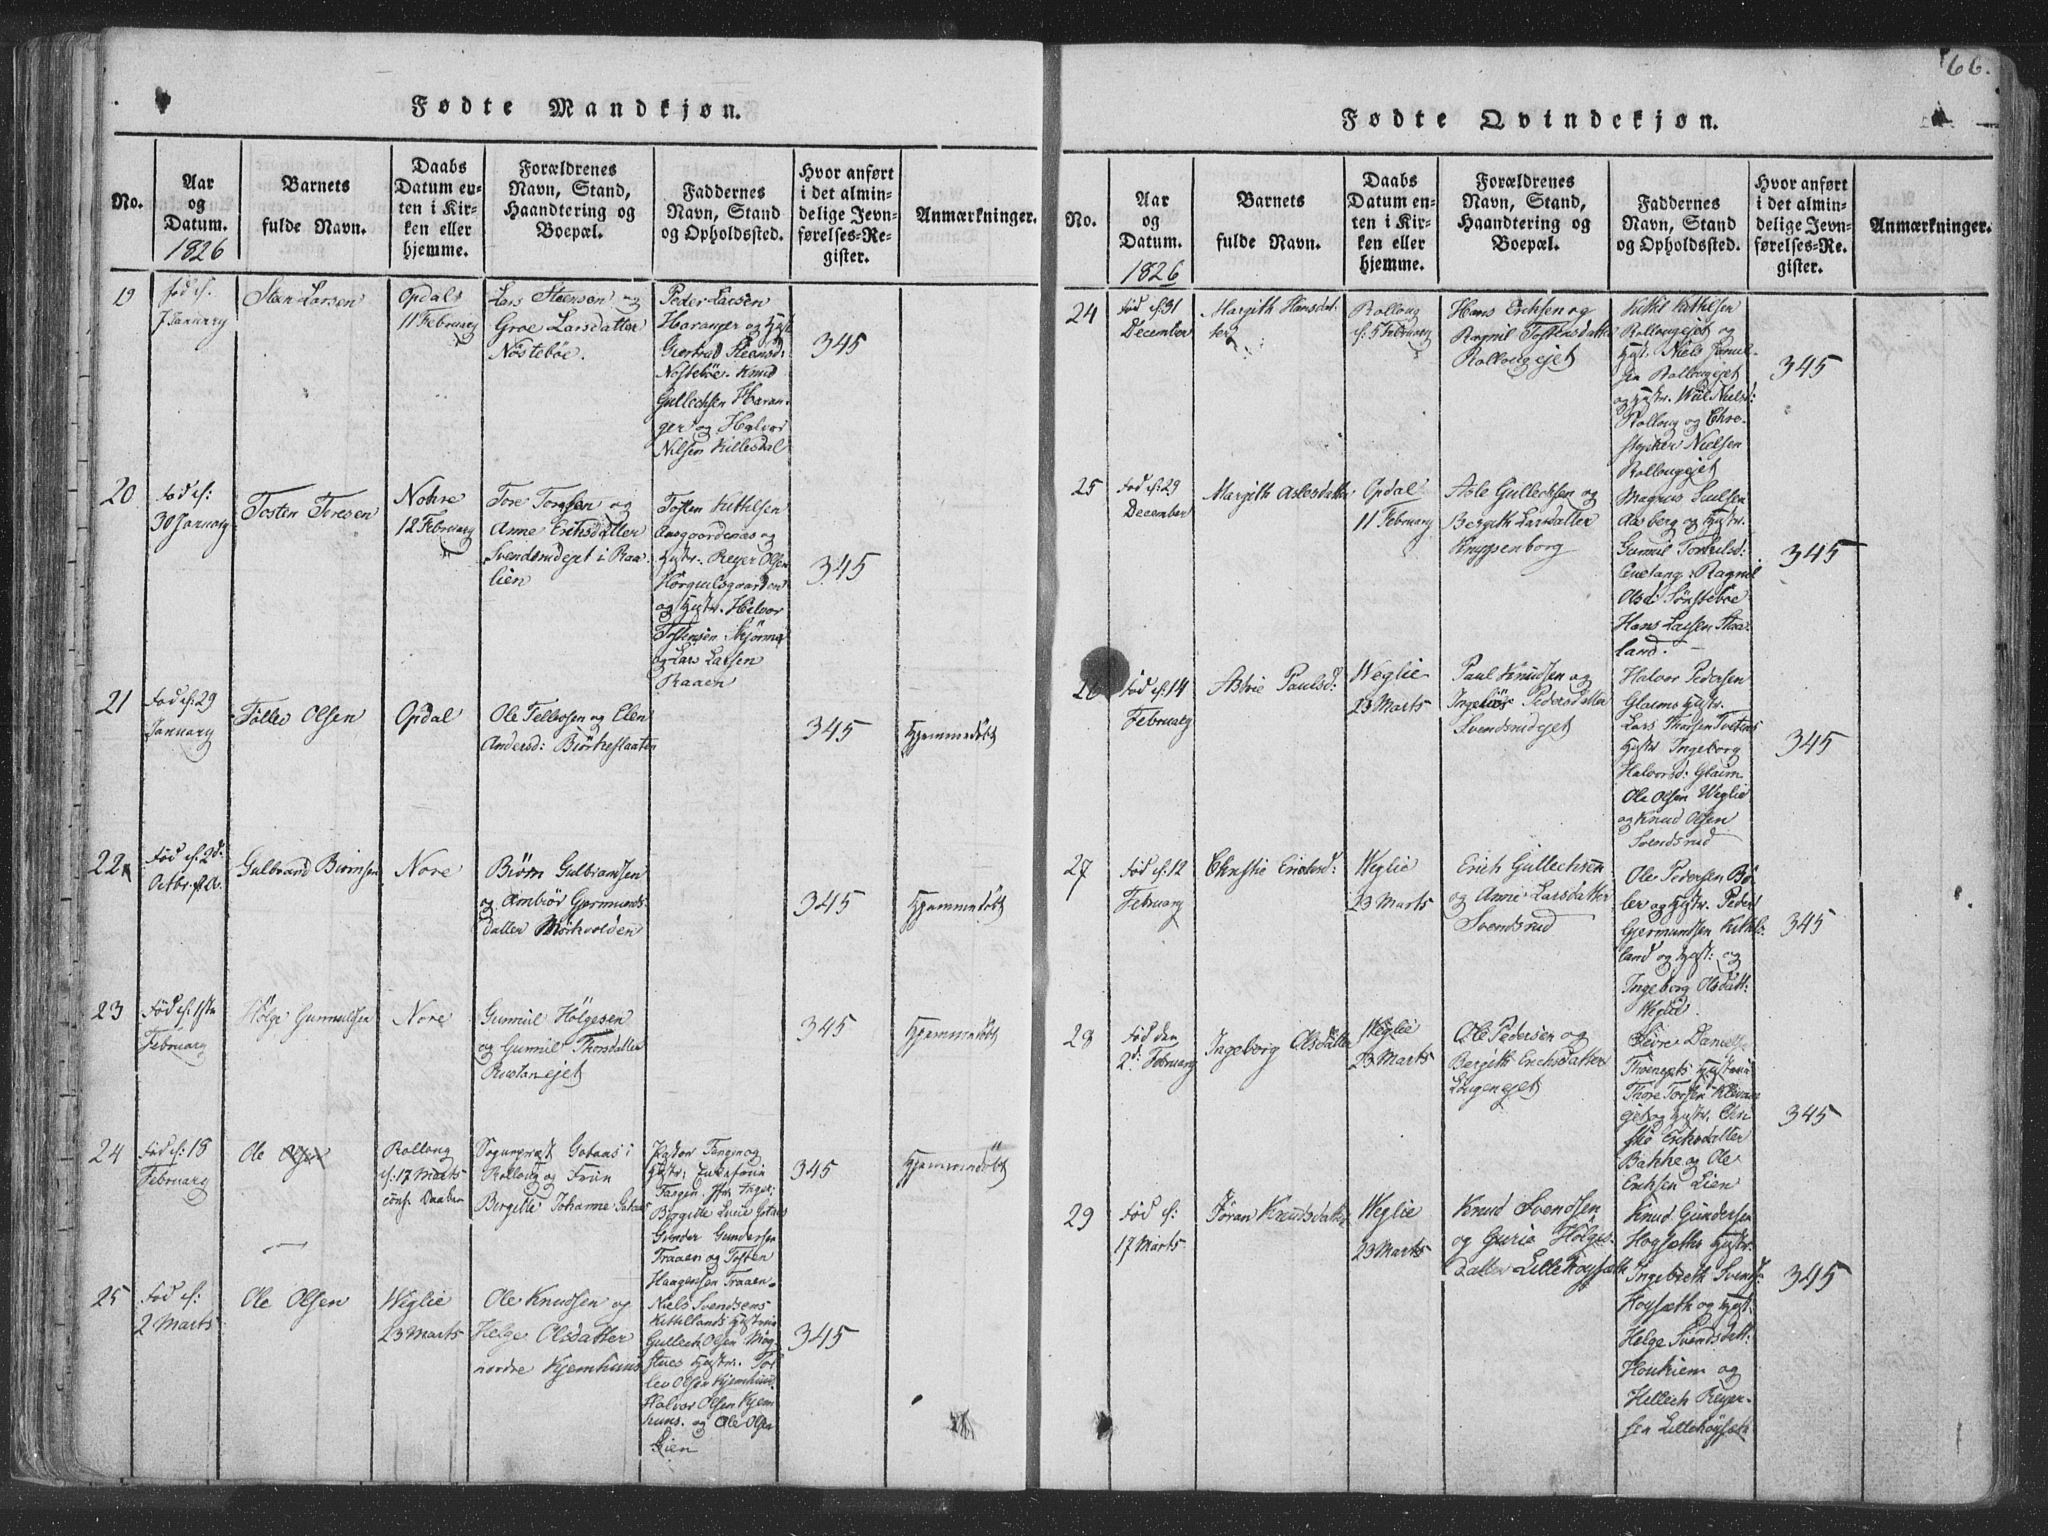 66.
Fødte Mandkjøn.
No.
Aar
og
Datum.
1826
Barnets
fulde Navn.
Daabs
Datum en-
ten i Kir-
ken eller
hjemme.
Forældrenes
Navn, Stand,
Haandtering og
Boepæl.
Faddernes
Navn, Stand
og Opholdssted.
Hvor anført
i det almin-
delige Jevn-
førelses-Re-
gister.
Anmærkninger.
19
fød d.
7 January
Steen Larsen
Opdals
11 February
Lars Steensen og
Groe Larsdatter
Nøstebøe.
Peder Larsen
Haranger og Hust
Giertrud Steensd:
Nøstebøe. Knud
Gullechsen Haran-
ger og Halvor
Nilsen Killesdal
345
20
Fød d:
30 January
Tosten Toresen
Nohre
12 February
Tore Torgsen og
Anne Erichsdatter
Svendsrudejet i Raa-
lien
Tosten Kittilsen
og
Hustr. Reyer Olsen
og Hustr. Halvor
Tostensen
og Lars Larsen
Raaen
345
21
Fød d: 29
January
Tollev Olsen
Opdal
Ole Tellevsen og Elen
Andersd: Biørkeslaaten
345
Hjemmedøbt
22
Fød d. 2d:
Octbr. f. A.
Gulbrand Biørnsen
Nore
Biørn Gulbrandsen
og Ambiør Germunds-
datter Mørkvolden
345
Hjemmedøbt
23
Fød d: 1ste
February
Hølge Gunnulsen
Nore
Gunnul Hølgesen
og Gunnil Thorsdatter
Rustanejet
345
Hjemmedøbt
24
Fød d: 18
February
Ole
Rolloug
d: 17 Marts
conf. Daaben
Sognepræst Gotaas i
Rolloug og Frue
Birgitte Johanne Gotaas
Pastor Fangen og
Hustr:
Birgitte Lucie Gotaas
Gunder Gundersen
Traaen og Tosten
Haagensen Traaen.
345
Hjemmedøbt
25
Fød d:
2 Marts
Ole Olsen
Weglie
23 Marts
Ole Knudsen og
Helge Olsdatter
nordre Kjemhuus
Niels Svendsens
Kittillands Hustrue
Gullech Olsen Mog-
stues Hustr. Tol-
lev Olsen Kjemhuus
Halvor Olsen Kjem
huus. og Ole Olsen
Lien
345
Fødte Qvindekjøn.
No.
Aar
og
Datum.
1826
Barnets
fulde Navn.
Daabs
Datum en-
ten i Kir-
ken eller
hjemme.
Forældrenes
Navn, Stand,
Haandtering og
Boepæl.
Faddernes
Navn, Stand
og Opholdssted.
Hvor anført
i det almin-
delige Jevn-
førelses-Re-
gister.
Anmærkninger.
24
Fød d: 31
December
Margith Hansdat-
ter
Rolloug
d: 5 February
Hans Erichsen og
Ragnil Tostensdatter
Rollougejet
Kittil Kittilsen
Rollougejet og
Hust. Niels
Rollougejet
og Hustr. Nielsd:
Rolloug og Chri-
Nielsen
Rollougejet
345
25
Fød d: 29
December
Margith Aslesdatter
Opdal
11 February
Asle Gullechsen og
Bergith Larsdatter
Knypsenborg
Magnus
Aasberg og Hustr.
Gunnil Torkilsd:
Ragnil
Olsd: Sønstebøe
Hans Larsen Haa-
land.
345
26
Fød d: 14
February
Astrie Paulsd:
Weglie
23 Marts
Paul Knudsen og
Ingebør Pedersdatter
Svendsrudejet
Halvor Pedersen
Glaims Hustr.
Lars
Hustr Ingeborg
Halvorsd: Glaim
Ole Olsen Weglie
og Knud Olsen
Svendsrud
345
27
Fød d: 12
February
Christie Erichsd:
Weglie
23 Marts
Erich Gullechsen
og Anne Larsdatter
Svendsrud
Ole Pedersen Bø-
ler og Hustr. Peder
Gjermundsen Kittil-
land og Hust: og
Ingeborg Olsdatt:
Weglie
345
28
Fød den
2d: February
Ingeborg Olsdatter
Weglie
23 Marts
Ole Pedersen og
Bergith Erichsdatter
Hustrue
Thore Torsen
og Hustr.
Erichsdatter
Bakke og Ole
Erichsen Lien
345
29
Fød d:
17 Marts
Jøran Knudsdatter
Weglie
23 Marts
Knud Svendsen
og Gurie Hølges-
datter Lillehoysæth
Knud Gundersen
Hogsæths Hustr.
Ingebreth Svends:
Hoysæth og Hust:
Helge Svendsdatt:
Houkiem og
Hellech Reyer-
sen Lillehoysæth
345